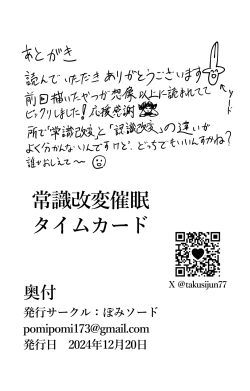 あとがき
読んでいただきありがとうございます
前回描いたやつが想像以上に読まれてて
ビックリしました!応援感謝
所で「常識改変」と「認識改変」の違いが
よく分かんないんですけど、どっちでもいいんすかね?
誰かおしえて〜
常識改変催眠
タイムカード
X @takusijun77
奥付
発行サークル:ぽみソード
pomipomi173@gmail.com
発行日 2024年12月20日